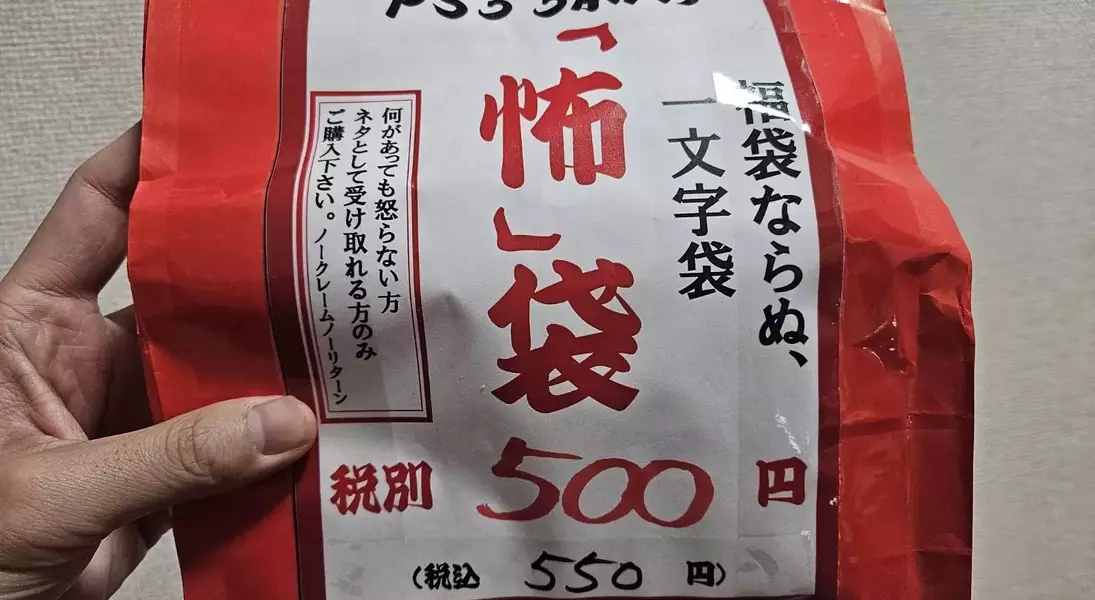 PS3
福袋ならぬ、
一文字袋
「怖」袋
何があっても怒らない方
ネタとして受け取れる方のみ
ご購入下さい。ノークレームノーリターン
税別 500 円
(税込 550 円)